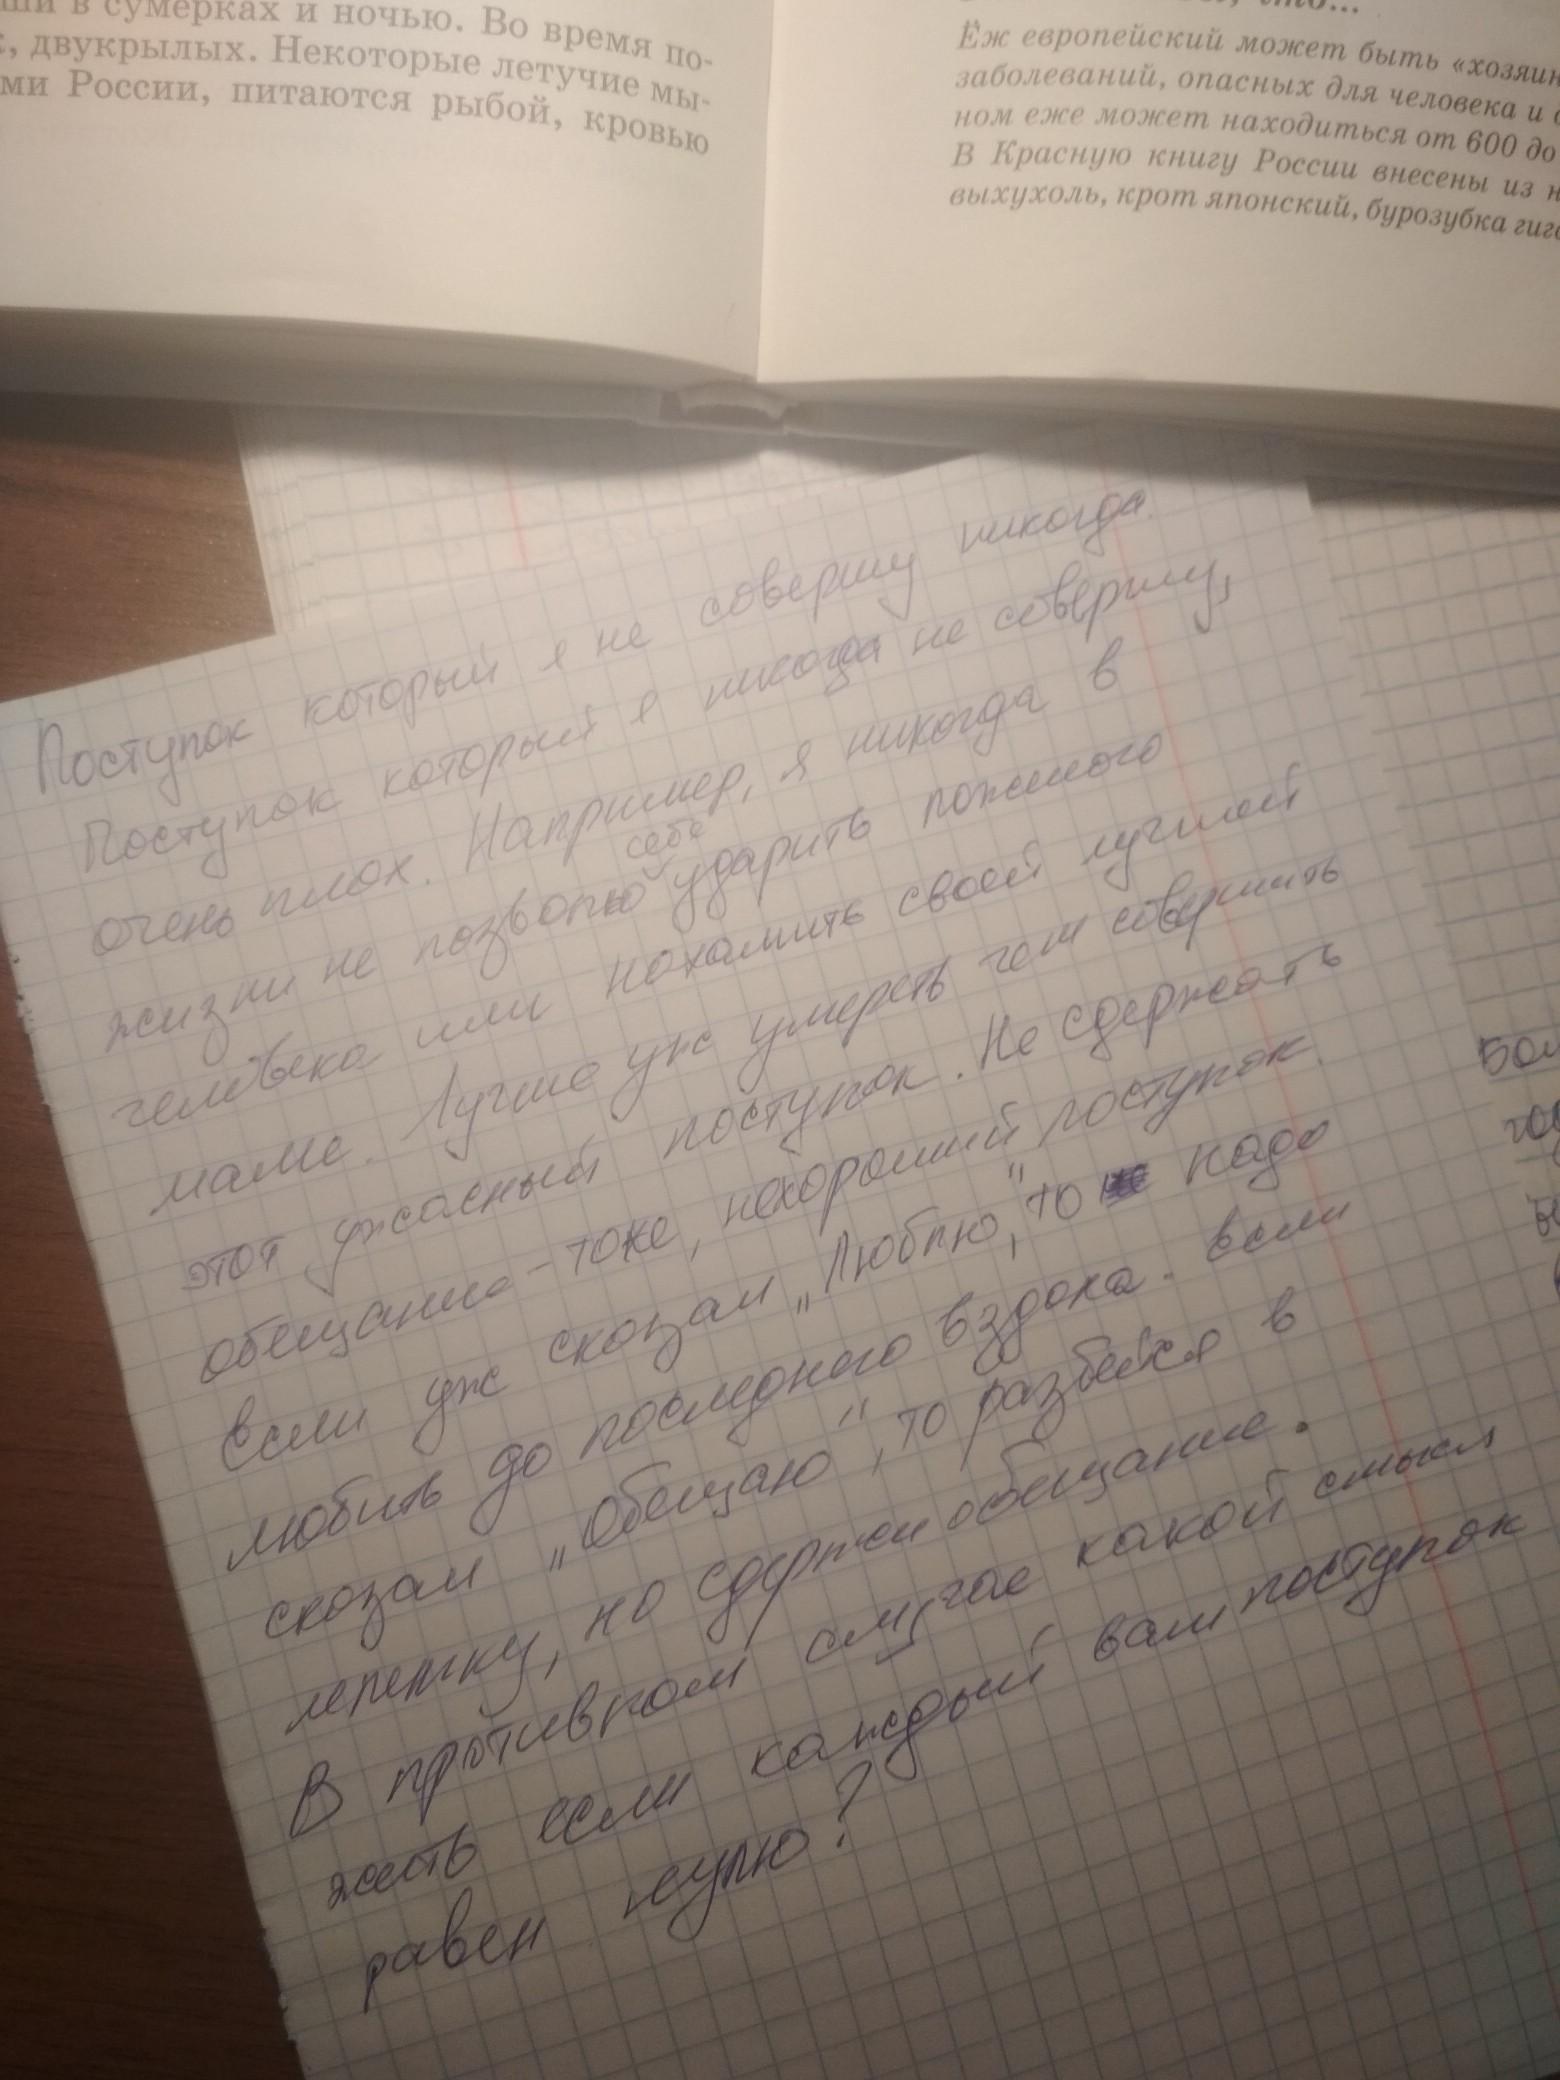 ши в сумерках и ночью. Во время по-
, двукрылых. Некоторые летучие мы-
ми России, питаются рыбой, кровью
что...
Ёж европейский может быть «хозяин
заболеваний, опасных для человека и
ном еже может находиться от 600 до
В Красную книгу России внесены из н
выхухоль, крот японский, бурозубка гига
Поступок который я не совершу никогда.
Поступок который я никогда не совершу,
очень плох. Например, я никогда в
жизни не позволю себе ударить пожилого
человека или нохамить своей лучшей
маме. Лучше уж умереть чем совершить
этот ужасный поступок. Не сдержать
обещание - тоже, нехороший поступок.
Если уж сказал „Люблю", то надо
любить до последнего вздоха. Если
сказал „Обещаю", то разбейся в
лепешку, но сдержи обещание.
В противном случае какой смысл
жить если каждый ваш поступок
равен нулю?